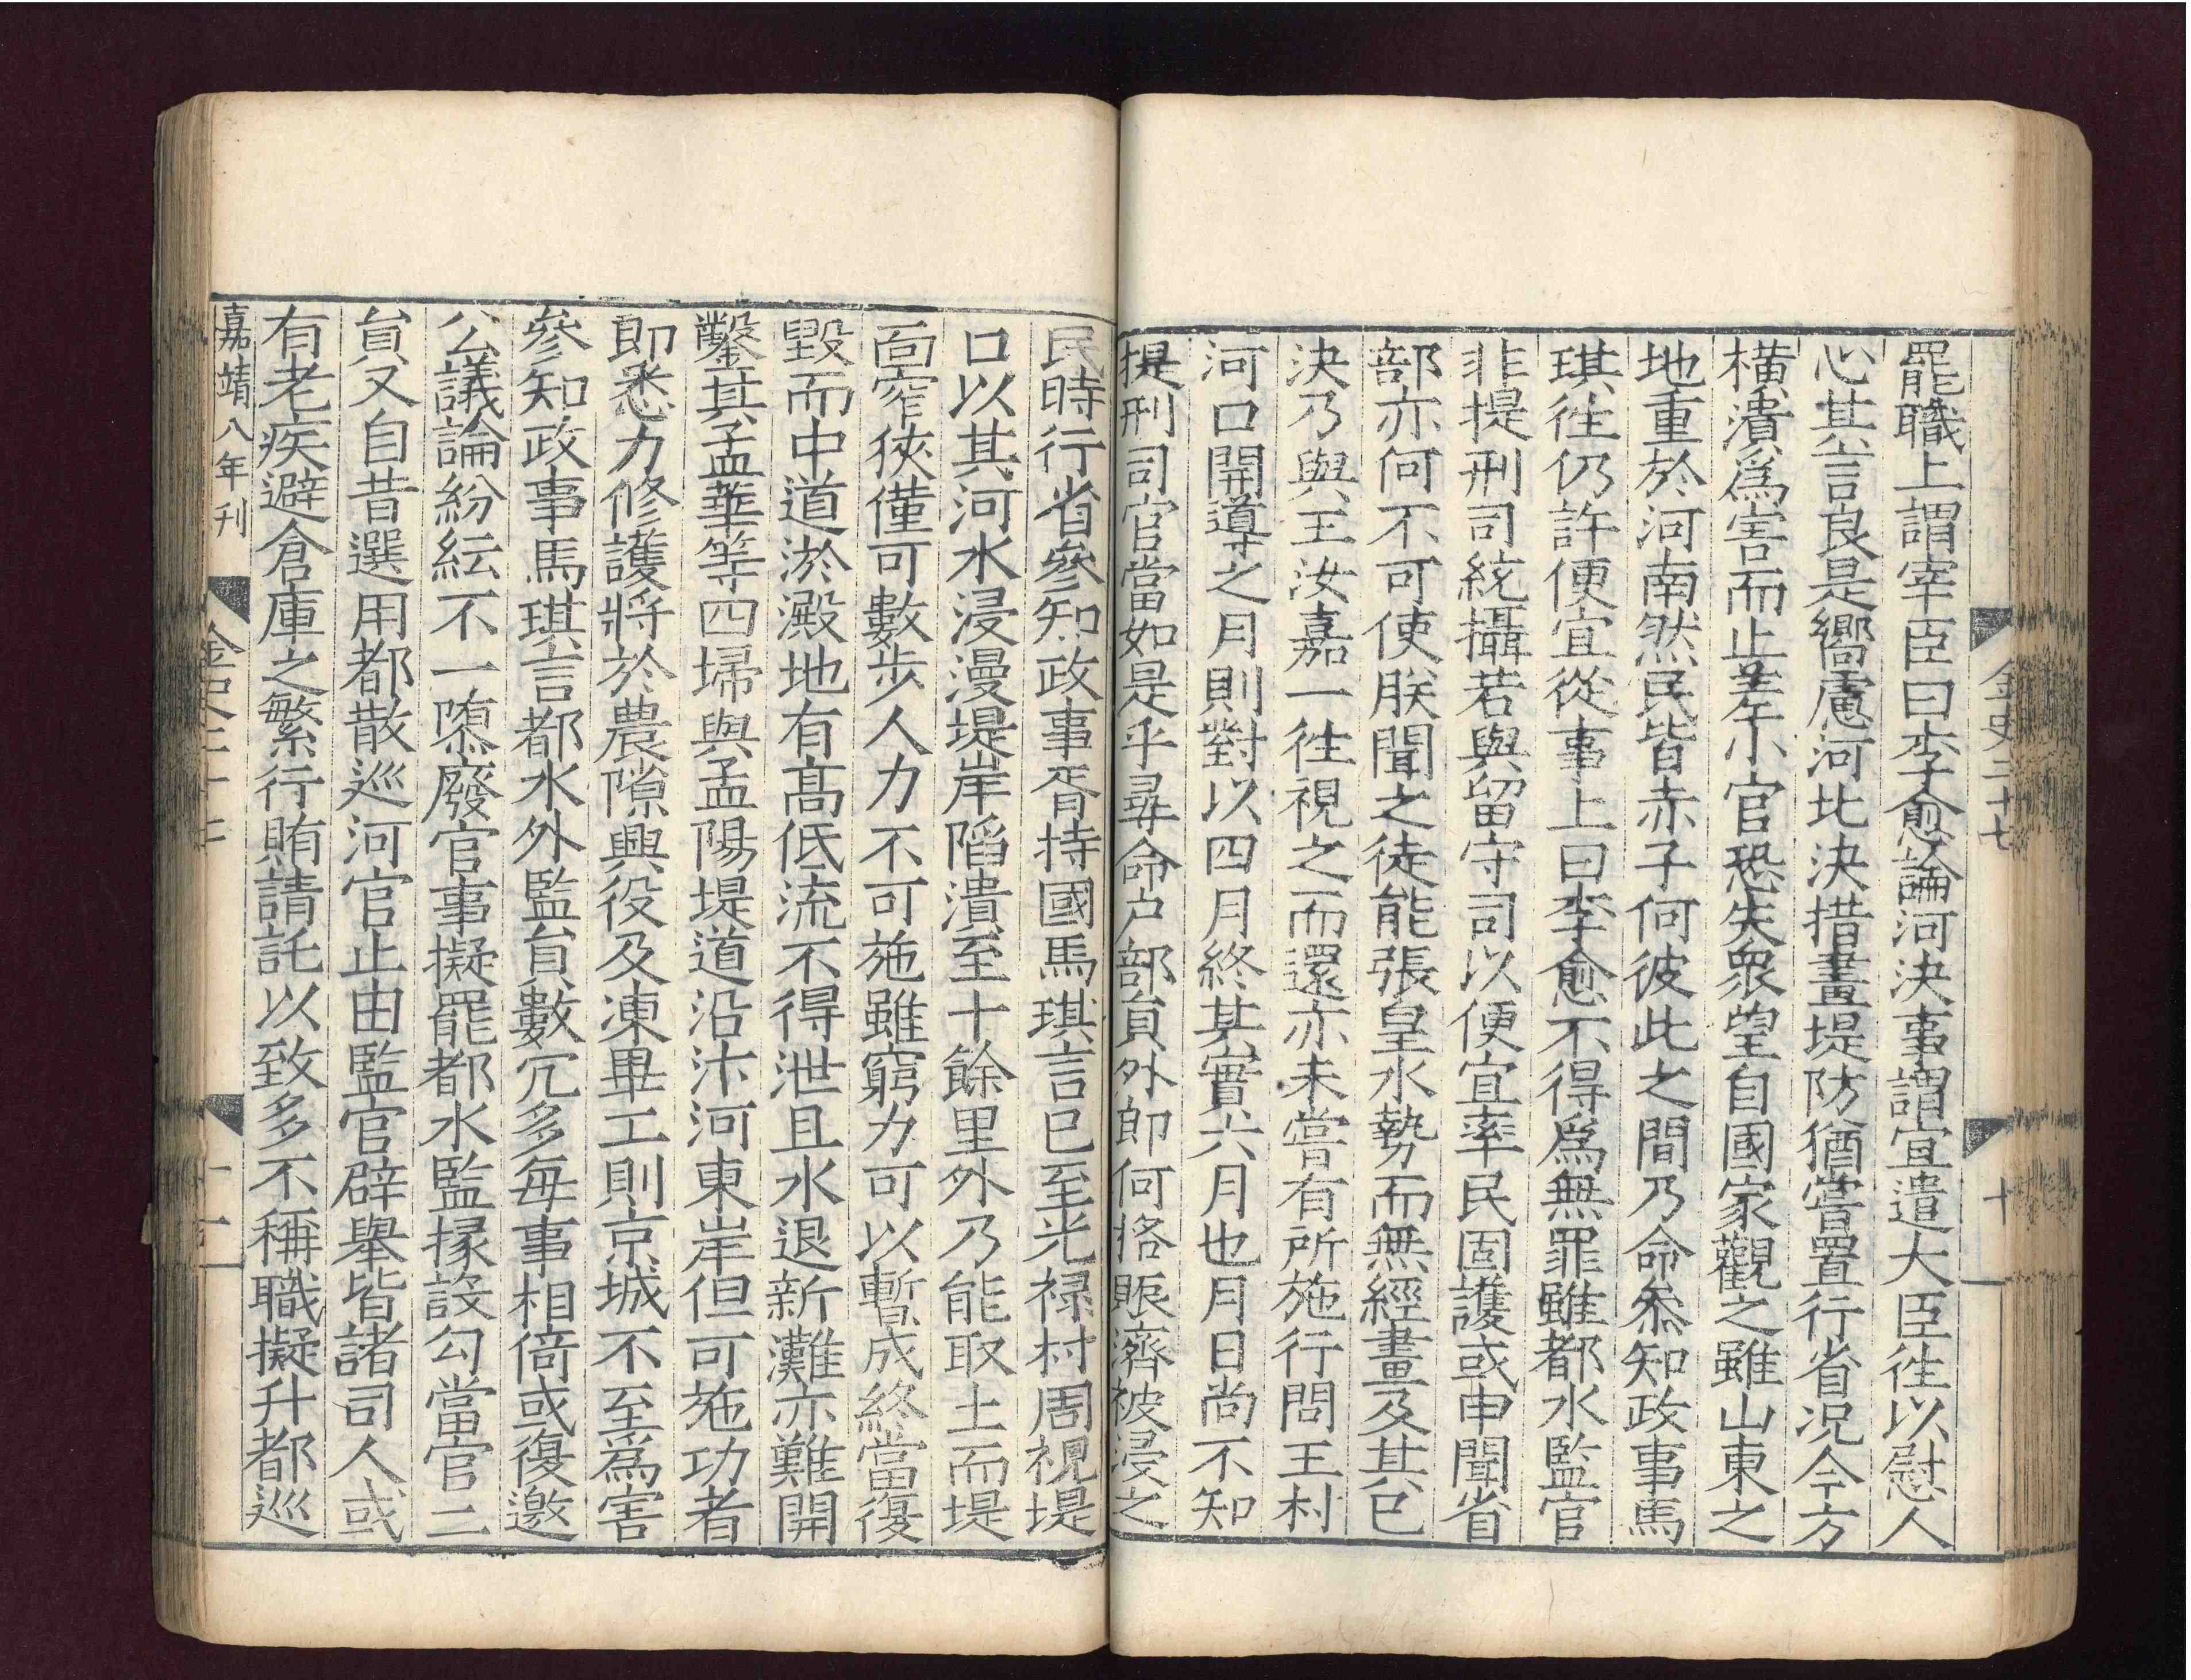 金史二十七
十
罷職上謂宰臣曰李愈論河決事謂宜遣大臣徃以慰人
心其言良是嚮慮河北決措畫堤防猶嘗置行省况今方
橫潰爲害而止差小官恐失衆望自國家觀之雖山東之
地重於河南然民皆赤子何彼此之間乃命叅知政事馬
琪徃仍許便宜從事上曰李愈不得爲無罪雖都水監官
非提刑司統攝若與留守司以便宜率民固護或申聞省
部亦何不可使朕聞之徒能張皇水勢而無經畫及其已
決乃與王汝嘉一徃視之而還亦未嘗有所施行問王村
河口開導之月則對以四月終其實六月也月日尚不知
提刑司官當如是乎尋命户部員外郎何格賑濟被浸之
民時行省參知政事胥持國馬琪言已至光禄村周視堤
口以其河水浸漫堤岸陷潰至十餘里外乃能取土而堤
面窄狹僅可數步人力不可施雖窮力可以暫成終當復
毀而中道淤澱地有高低流不得泄且水退新灘亦難開
鑿其孟華等四埽與孟陽堤道沿汴河東岸但可施功者
即悉力修護將於農隙興役及凍畢工則京城不至爲害
參知政事馬琪言都水外監員數冗多每事相倚或復邀
公議論紛紜不一隳廢官事擬罷都水監掾設勾當官二
員又自昔選用都散巡河官止由監官辟舉皆諸司人或
有老疾避倉庫之繁行賄請託以致多不稱職擬升都巡
嘉靖八年刊
金史二十七
十一